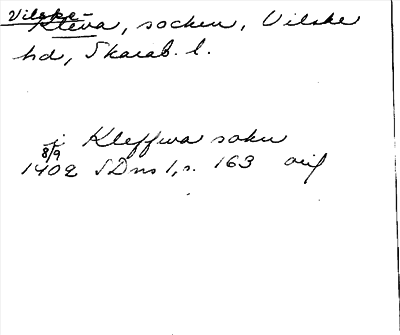 Vilske-
Kleva, socken, Vilske
hd, Skarab. l.
j Kleffwa sokn
8/9
1402 SDns 1, s. 163 orig